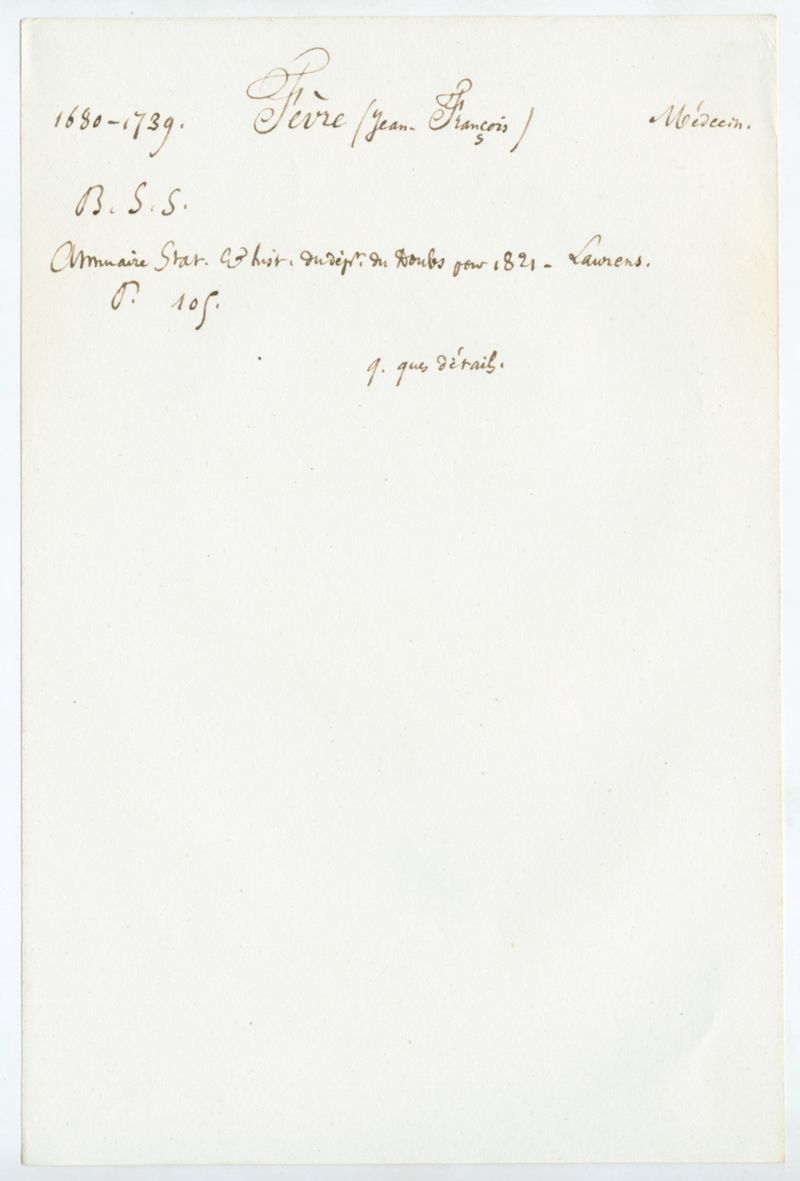 1680-1739. Fèvre (Jean-François) Médecin.
B. S. S.
Annuaire Stat. & hist. du dépt. du Doubs pour 1821 - Laurens.
P. 105.
q. ques détails.